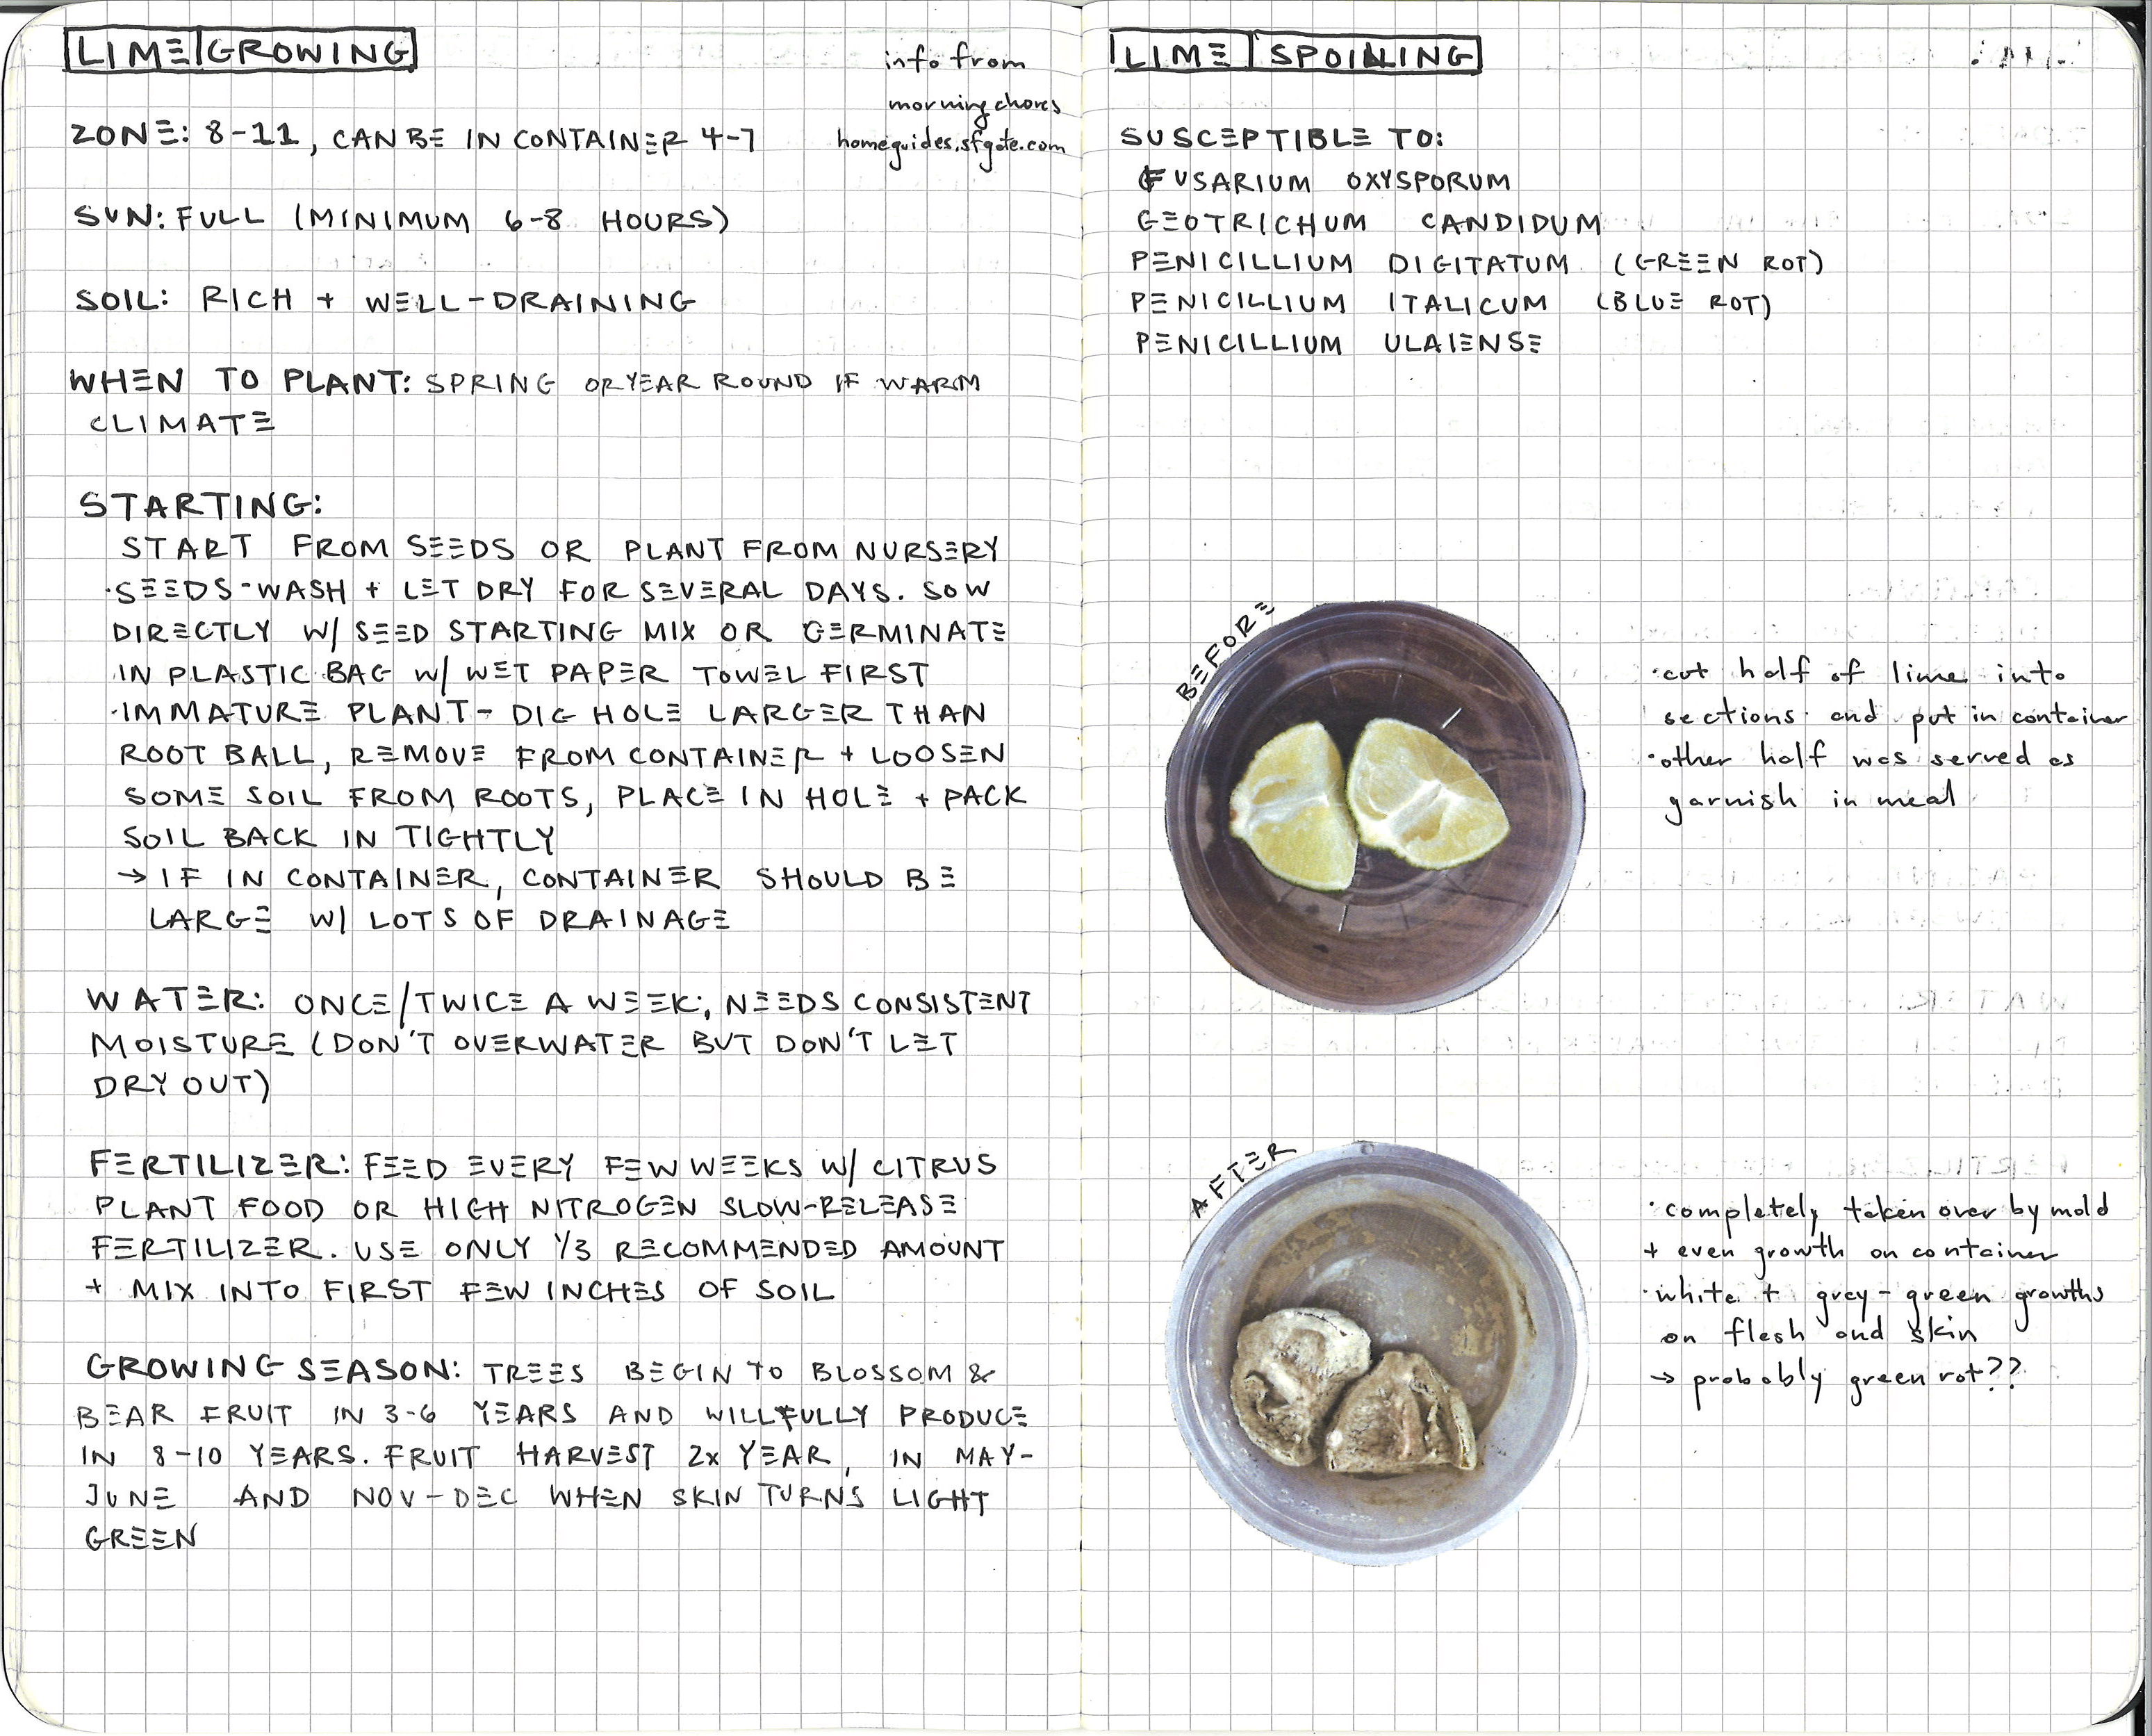 LIME GROWING
info from
morningchores
homeguides.sfgate.com
ZONE: 8-11, CAN BE IN CONTAINER 4-7
SUN: FULL (MINIMUM 6-8 HOURS)
SOIL: RICH + WELL-DRAINING
WHEN TO PLANT: SPRING OR YEAR ROUND IF WARM
CLIMATE
STARTING:
START FROM SEEDS OR PLANT FROM NURSERY
·SEEDS-WASH + LET DRY FOR SEVERAL DAYS. SOW
DIRECTLY W/ SEED STARTING MIX OR GERMINATE
IN PLASTIC BAG W/ WET PAPER TOWEL FIRST
·IMMATURE PLANT- DIG HOLE LARGER THAN
ROOT BALL, REMOVE FROM CONTAINER + LOOSEN
SOME SOIL FROM ROOTS, PLACE IN HOLE + PACK
SOIL BACK IN TIGHTLY
→ IF IN CONTAINER, CONTAINER SHOULD BE
LARGE W/ LOTS OF DRAINAGE
WATER: ONCE/TWICE A WEEK; NEEDS CONSISTENT
MOISTURE (DON'T OVERWATER BUT DON'T LET
DRY OUT)
FERTILIZER: FEED EVERY FEW WEEKS W/ CITRUS
PLANT FOOD OR HIGH NITROGEN SLOW-RELEASE
FERTILIZER. USE ONLY 1/3 RECOMMENDED AMOUNT
+ MIX INTO FIRST FEW INCHES OF SOIL
GROWING SEASON: TREES BEGIN TO BLOSSOM &
BEAR FRUIT IN 3-6 YEARS AND WILL FULLY PRODUCE
IN 8-10 YEARS. FRUIT HARVEST 2x YEAR, IN MAY-
JUNE AND NOV-DEC WHEN SKIN TURNS LIGHT
GREEN
LIME SPOILING
SUSCEPTIBLE TO:
FUSARIUM OXYSPORUM
GEOTRICHUM CANDIDUM
PENICILLIUM DIGITATUM (GREEN ROT)
PENICILLIUM ITALICUM (BLUE ROT)
PENICILLIUM ULAIENSE
BEFORE
·cut half of lime into
sections and put in container
·other half was served as
garnish in meal
AFTER
·completely taken over by mold
+ even growth on container
·white + grey-green growths
on flesh and skin
→ probably green rot??